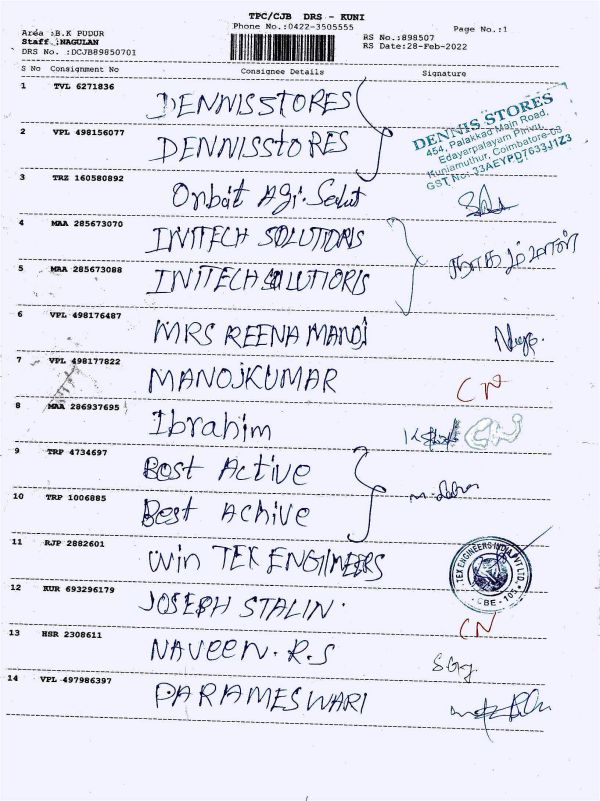 TPC/CJB DRS - KUNI
Phone No.:0422-3505555
Page No.:1
Aréa :B.K PUDUR
Staff :NAGULAN
DRS No. :DCJB89850701
RS No.:898507
RS Date:28-Feb-2022
S No Consignment No Consignee Details Signature
1 TVL 6271836 DENNISSTORES
2 VPL 498156077 DENNISSTORES
DENNIS STORES
454, Palakkad Main Road,
Edayarpalayam Pirivu,
Kuniamuthur, Coimbatore-08
GST No: 33AEYPD7633J1Z3
3 TRZ 160580892 Orbit Agi.
4 MAA 285673070 INITECH SOLUTIORIS
5 MAA 285673088 INITECH SOLUTIORIS
6 VPL 498176487 MRS REENA MANOJ
7 VPL 498177822 MANOJKUMAR CN
8 MAA 286937695 Ibrahim CN
9 TRP 4734697 Best Active
10 TRP 1006885 Best Achive
11 RJP 2882601 Win TEK ENGINEERS
TEK ENGINEERS INDIA PVT LTD.
CBE - 105
12 KUR 693296179 JOSEPH STALIN. CN
13 HSR 2308611 NAVEEN. R.S
14 VPL 497986397 PARAMESWARI